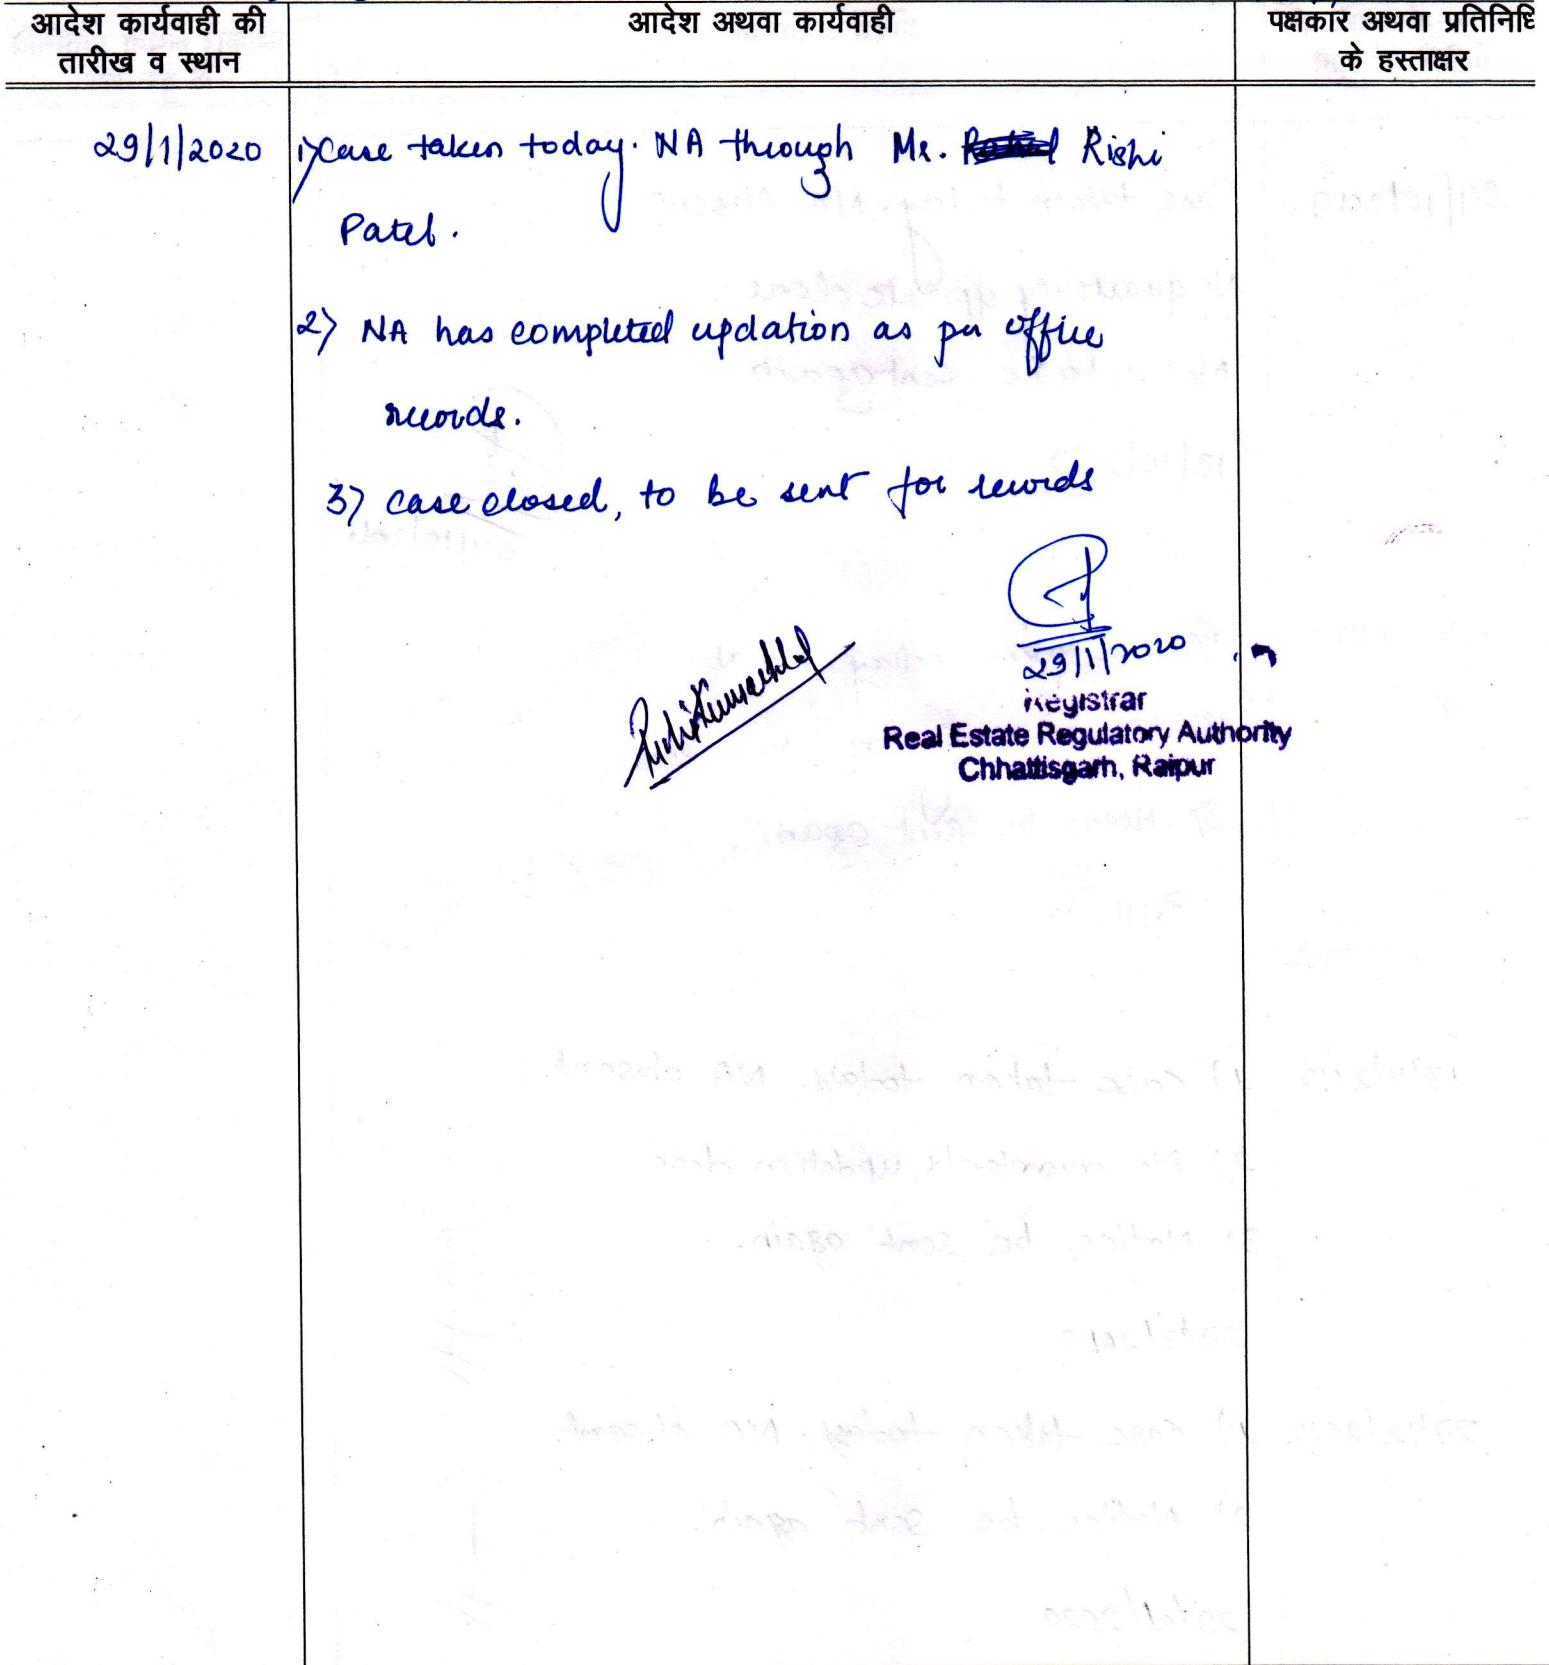 आदेश कार्यवाही की
तारीख व स्थान
आदेश अथवा कार्यवाही
पक्षकार अथवा प्रतिनिधि
के हस्ताक्षर
29/1/2020 1) Case taken today. NA through Mr. Rishi
Patel.
2) NA has completed updation as per office
records.
3) case closed, to be sent for records
29/1/2020
Registrar
Real Estate Regulatory Authority
Chhattisgarh, Raipur